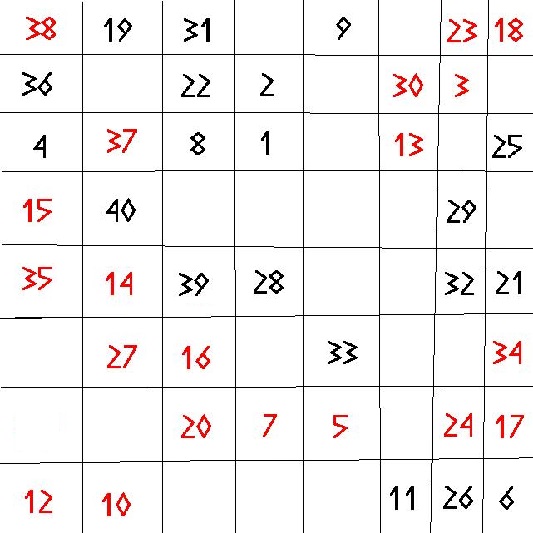 38 19 31 9 23 18
36 22 2 30 3
4 37 8 1 13 25
15 40 29
35 14 39 28 32 21
27 16 33 34
20 7 5 24 17
12 10 11 26 6